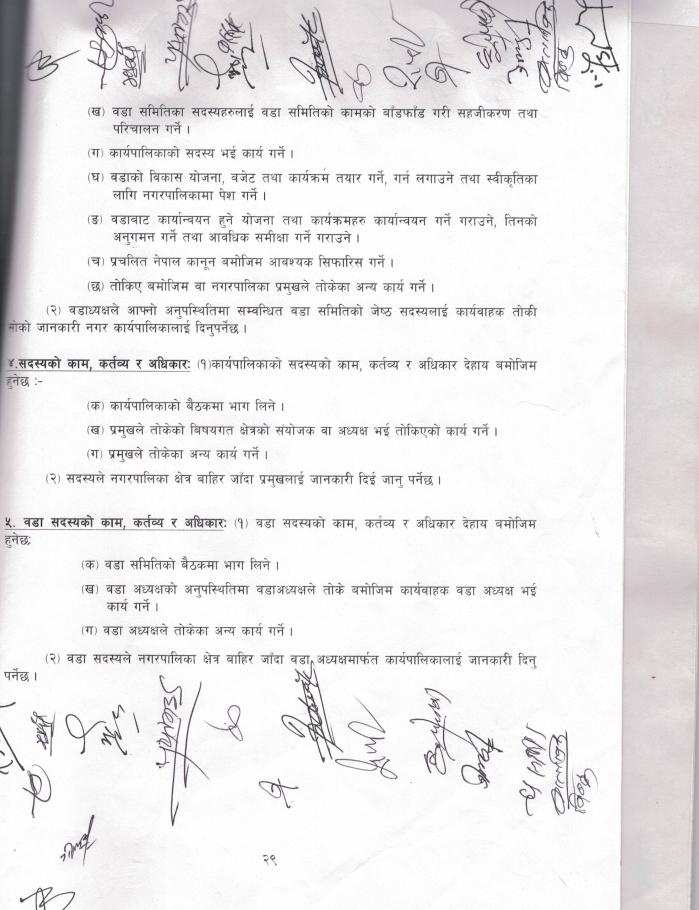 (ख) वडा समितिका सदस्यहरुलाई वडा समितिको कामको बाँडफाँड गरी सहजीकरण तथा
परिचालन गर्ने ।
(ग) कार्यपालिकाको सदस्य भई कार्य गर्ने ।
(घ) वडाको विकास योजना, बजेट तथा कार्यक्रम तयार गर्ने, गर्न लगाउने तथा स्वीकृतिका
लागि नगरपालिकामा पेश गर्ने ।
(ङ) वडाबाट कार्यान्वयन हुने योजना तथा कार्यक्रमहरु कार्यान्वयन गर्ने गराउने, तिनको
अनुगमन गर्ने तथा आवधिक समीक्षा गर्ने गराउने ।
(च) प्रचलित नेपाल कानून बमोजिम आवश्यक सिफारिस गर्ने ।
(छ) तोकिए बमोजिम वा नगरपालिका प्रमुखले तोकेको अन्य कार्य गर्ने ।
(२) वडाध्यक्षले आफ्नो अनुपस्थितिमा सम्बन्धित वडा समितिको जेष्ठ सदस्यलाई कार्यबाहक तोकी
सोको जानकारी नगर कार्यपालिकालाई दिनुपर्नेछ ।
४.सदस्यको काम, कर्तव्य र अधिकारः (१)कार्यपालिकाको सदस्यको काम, कर्तव्य र अधिकार देहाय बमोजिम
हुनेछ :-
(क) कार्यपालिकाको बैठकमा भाग लिने ।
(ख) प्रमुखले तोकेको बिषयगत क्षेत्रको संयोजक वा अध्यक्ष भई तोकिएको कार्य गर्ने ।
(ग) प्रमुखले तोकेका अन्य कार्य गर्ने ।
(२) सदस्यले नगरपालिका क्षेत्र बाहिर जाँदा प्रमुखलाई जानकारी दिई जानु पर्नेछ ।
५. वडा सदस्यको काम, कर्तव्य र अधिकारः (१) वडा सदस्यको काम, कर्तव्य र अधिकार देहाय बमोजिम
हुनेछः
(क) वडा समितिको बैठकमा भाग लिने ।
(ख) वडा अध्यक्षको अनुपस्थितिमा वडाअध्यक्षले तोके बमोजिम कार्यबाहक वडा अध्यक्ष भई
कार्य गर्ने ।
(ग) वडा अध्यक्षले तोकेका अन्य कार्य गर्ने ।
(२) वडा सदस्यले नगरपालिका क्षेत्र बाहिर जाँदा वडा अध्यक्षमार्फत कार्यपालिकालाई जानकारी दिनु
पर्नेछ ।
२९